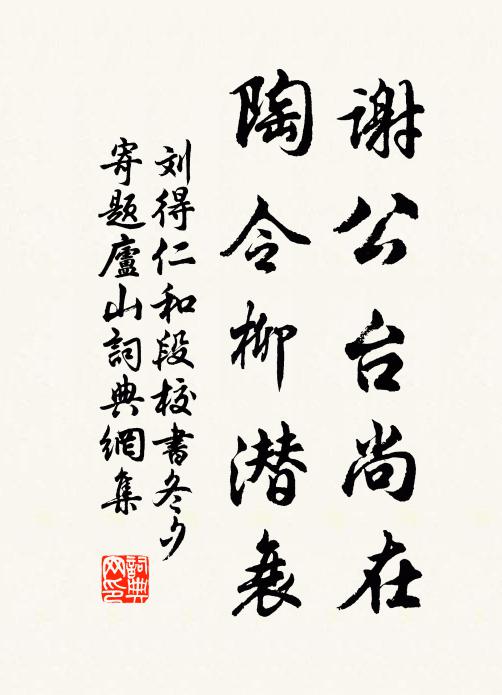 谢公台尚在
陶令柳潜衰
刘得仁和段校书冬夕
寄题廬山詞典網集
詞典网印